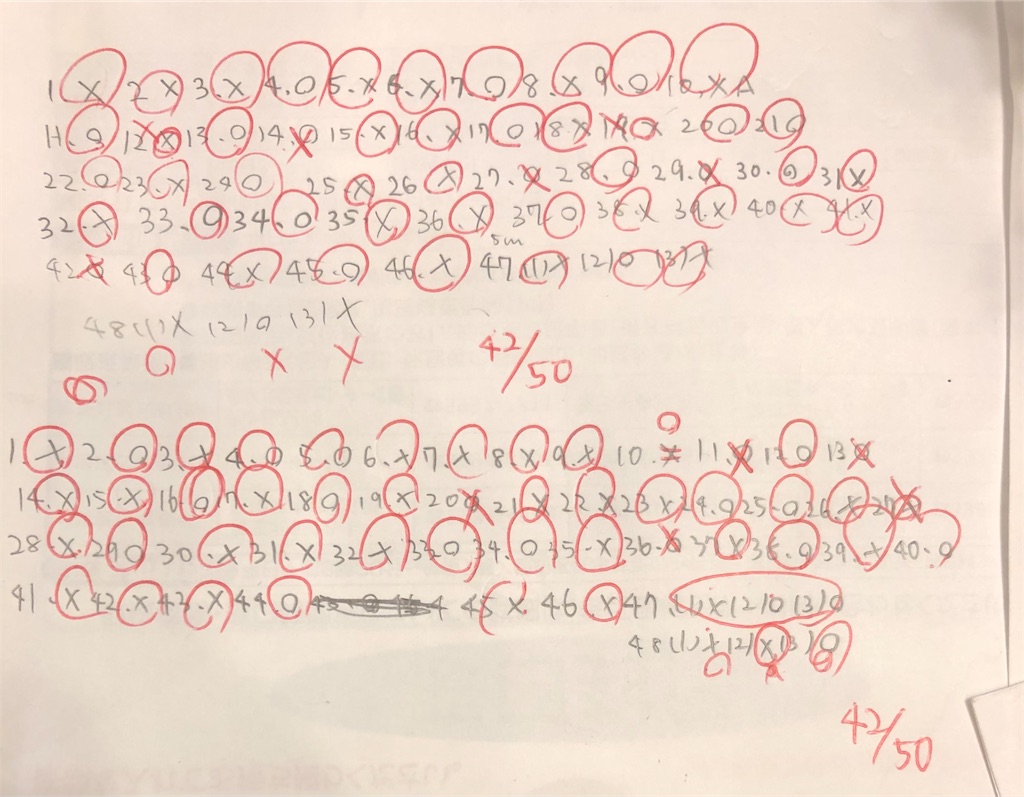 1 X 2 X 3.X 4.O 5.X 6.X 7 O 8.X 9.O 10.X A
11.O 12 X 13.O 14.O 15.X 16.X 17 O 18 X 19 O X 20 O 21 O
22.O 23.X 24 O 25.X 26 X 27.O 28.O 29.O 30.O 31 X
32.X 33.O 34.O 35.X 36.X 37.O 38.X 39.X 40 X 41.X
5m
42 O 43 O 44.X 45.O 46.X 47 (1) X (2) O (3) X
48 (1) X (2) O (3) X
O X X 42/50
1.X 2.O 3.X 4.O 5.O 6.X 7.X 8.X 9.X 10.X 11.O 12.O 13 O
14.X 15.X 16 O 17.X 18 O 19.X 20 O 21 X 22.X 23 X 24.O 25.O 26.X 27 O
28.X 29 O 30.X 31.X 32 X 33 O 34.O 35.X 36.O 37 X 38.O 39.X 40.O
41.X 42.X 43.X 44.O 45 X 46.X 47.(1) X (2) O (3) O
48 (1) X (2) X (3) O
42/50